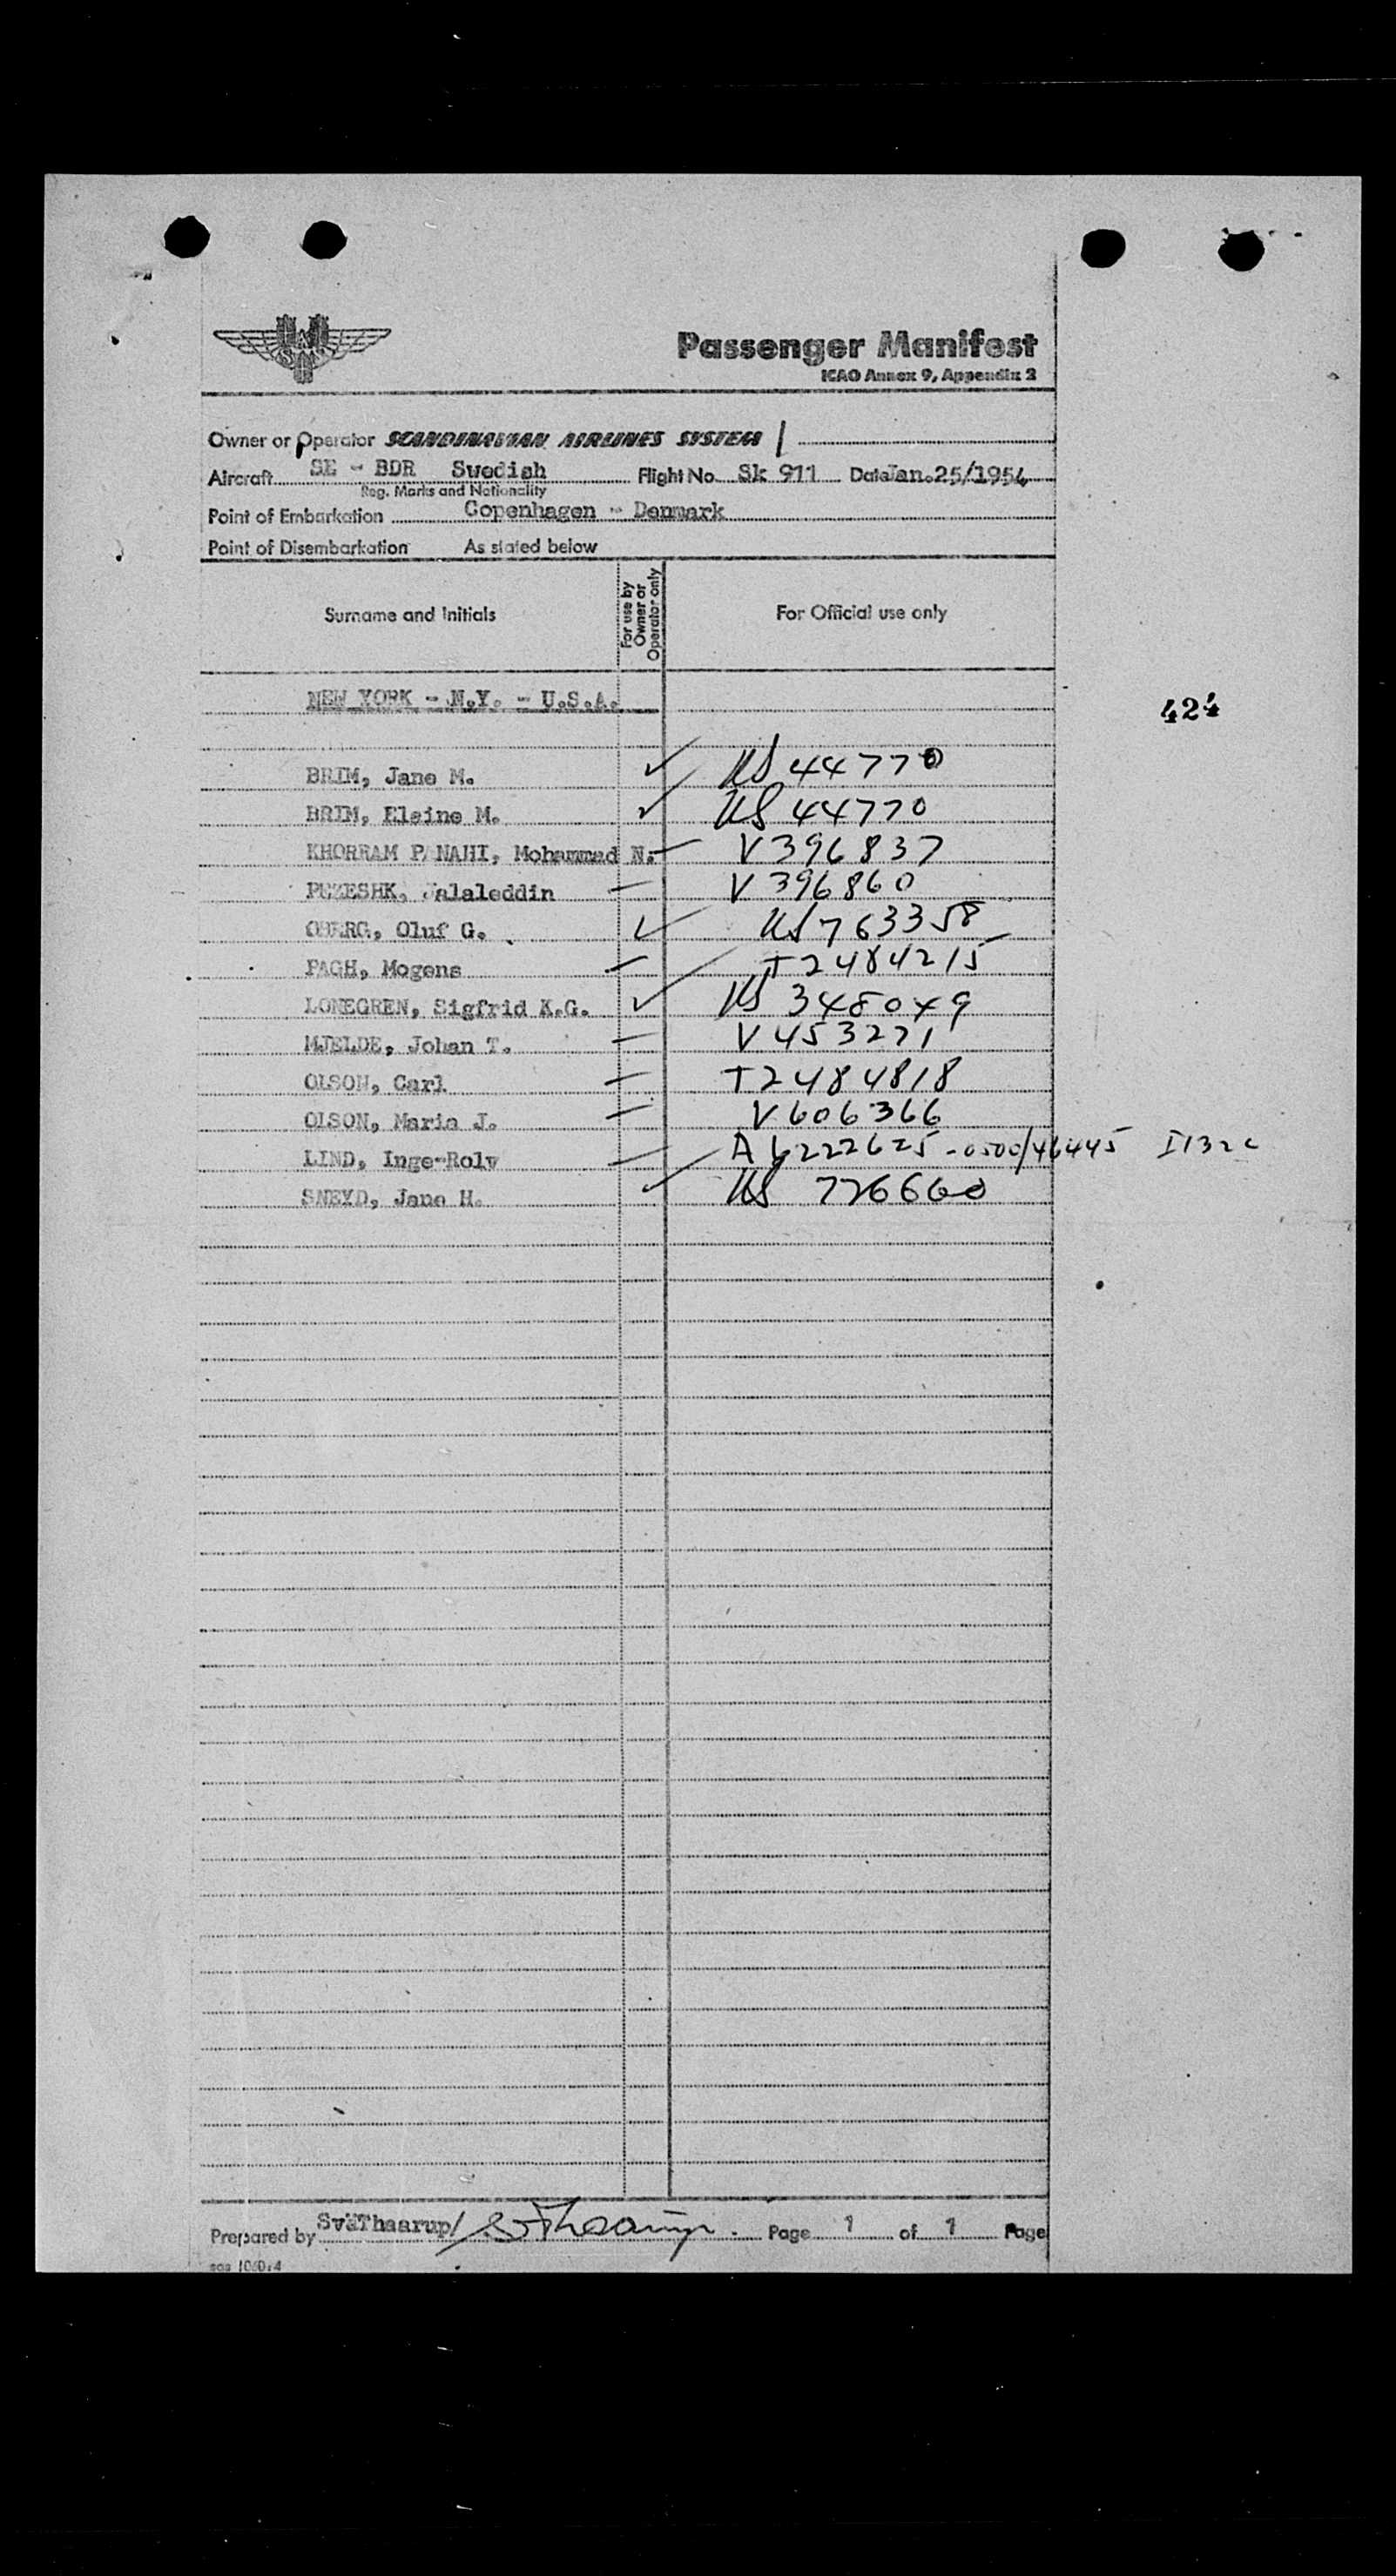 SAS
Passenger Manifest
ICAO Annex 9, Appendix 2
Owner or Operator SCANDINAVIAN AIRLINES SYSTEM
Aircraft SE - BDR Swedish Flight No. Sk 911 Date Jan.25/1954
Reg. Marks and Nationality
Point of Embarkation Copenhagen - Denmark
Point of Disembarkation As stated below
Surname and Initials For use by Owner or Operator only For Official use only
NEW YORK - N.Y. - U.S.A.
424
BRIM, Jane M. ✓ US 44770
BRIM, Elaine M. ✓ US 44770
KHORRAM PANAHI, Mohammad N. - V396837
PEZESHK, Jalaleddin - V396860
OBERG, Oluf G. ✓ US 763358
PAGH, Mogens - T2484215
LONEGREN, Sigfrid K.G. ✓ US 348049
MJELDE, Johan T. - V453271
OLSON, Carl - T2484818
OLSON, Maria J. - V606366
LIND, Inge-Rolv - A6222625 - 0500/46445 I132c
SNEYD, Jane H. ✓ US 726660
Prepared by SvaThaarup/ Page 1 of 1 Page